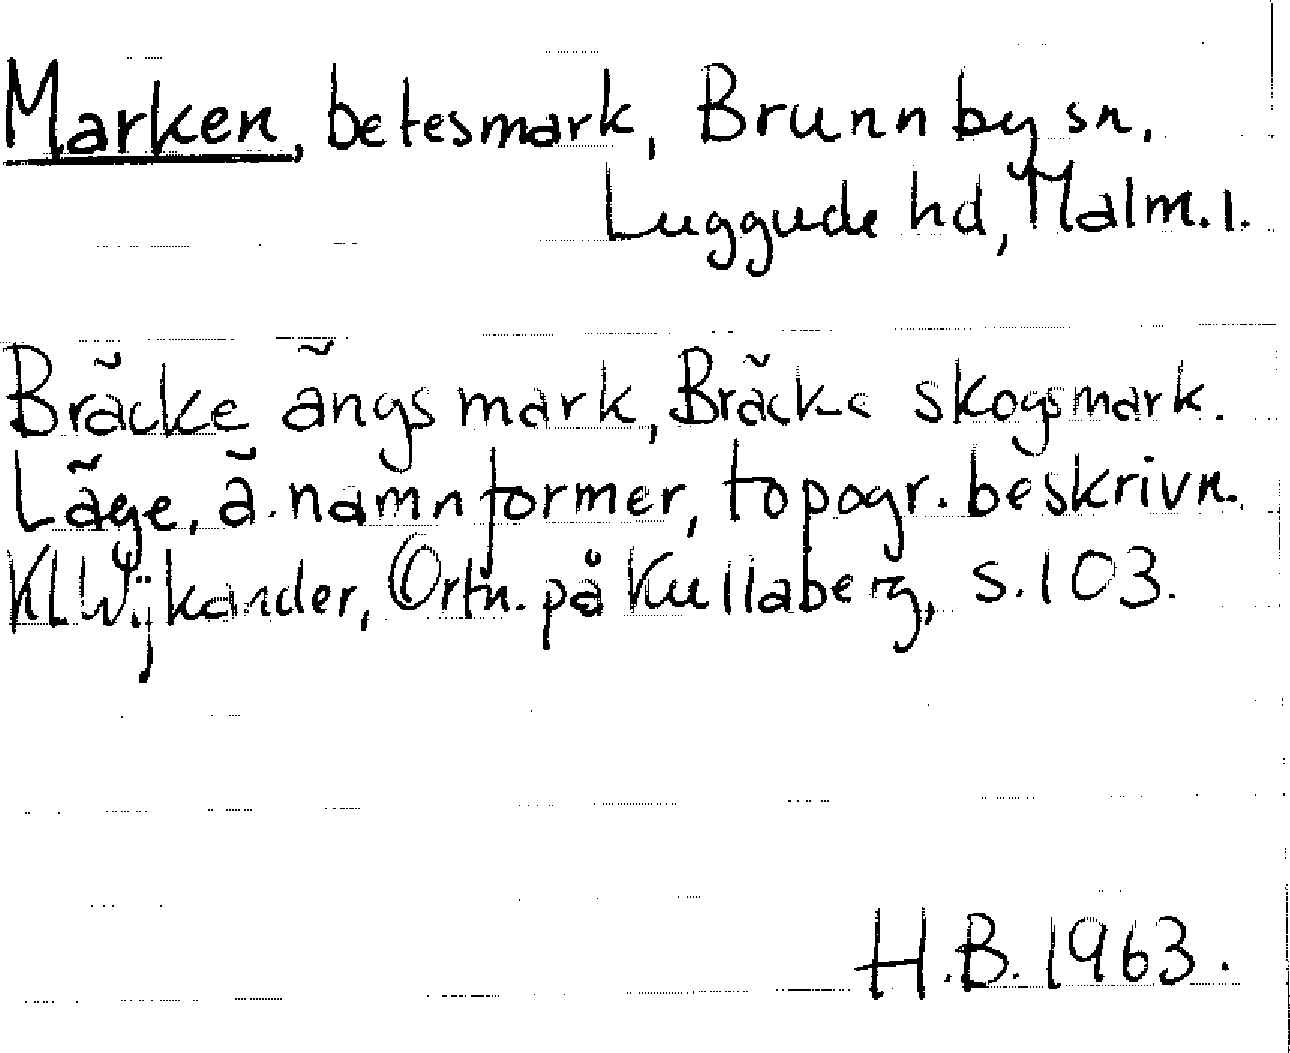 Marken, betesmark, Brunnby sn.
Luggude hd, Malm. l.
Bräcke ängsmark, Bräcke skogsmark.
Läge, ä. namnformer, topogr. beskrivn.
Kl. Wijkander, Ortn. på Kullaberg, s. 103.
H.B. 1963.